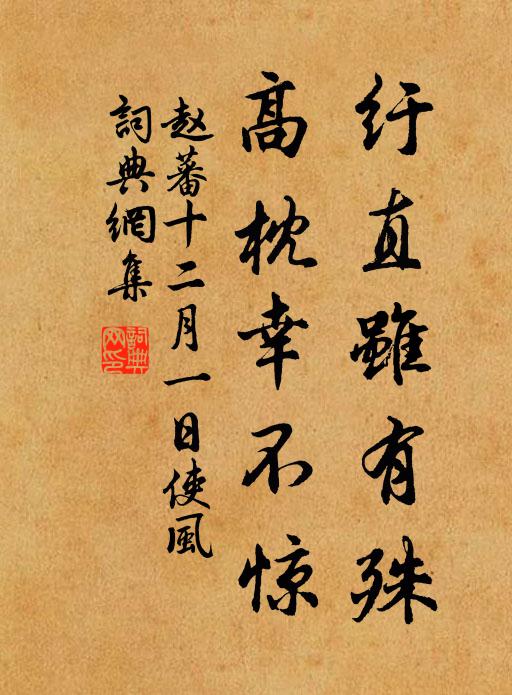 纡直虽有殊
高枕幸不惊
赵蕃十二月一日使风
詞典網集
詞典网印